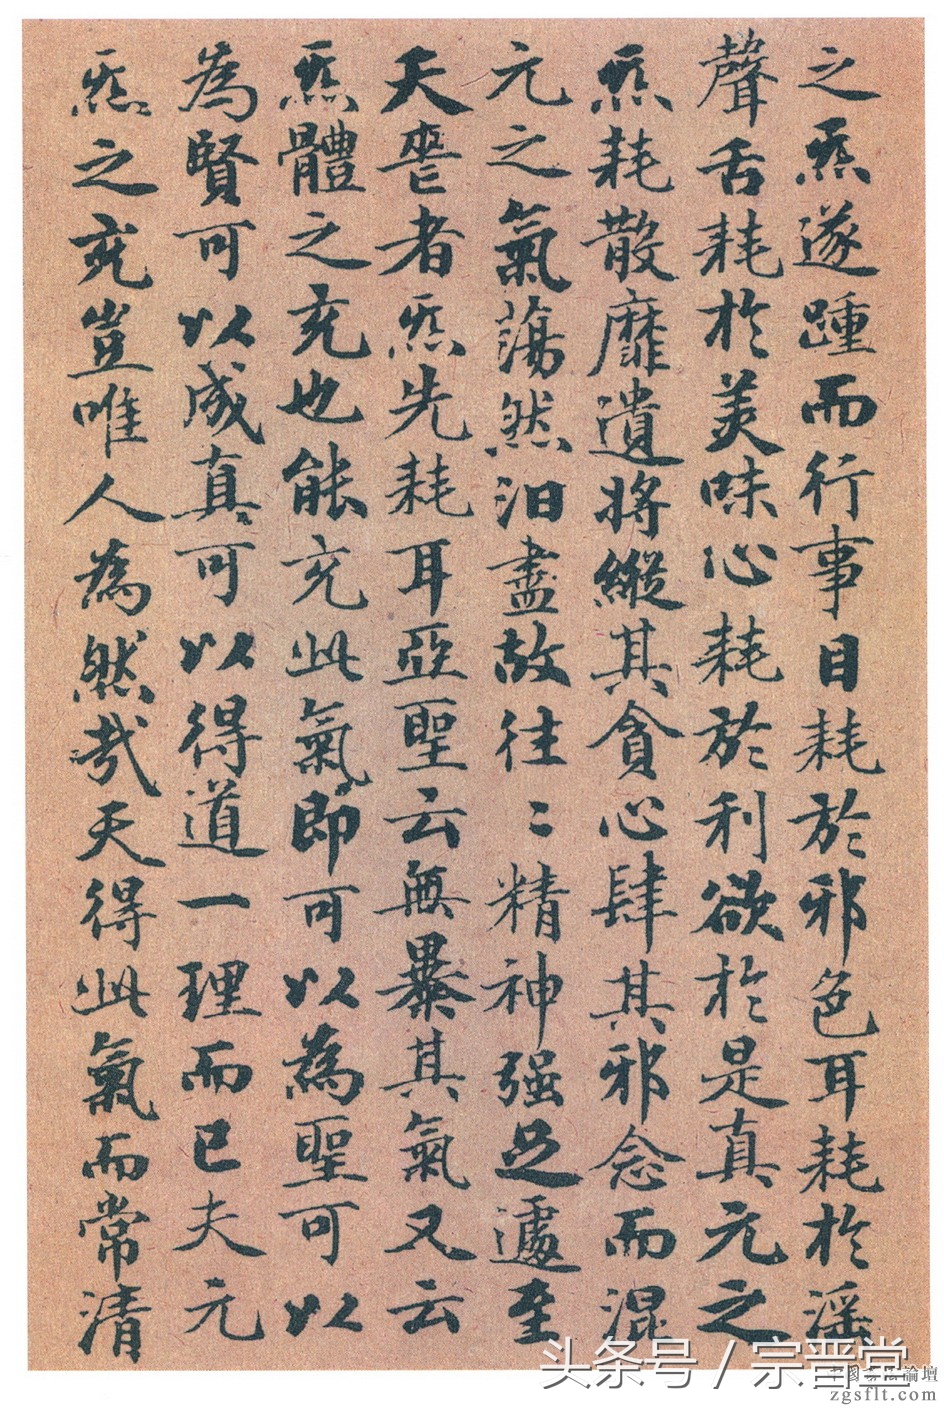 之炁遂踵而行事目耗於邪色耳耗於淫
聲舌耗於美味心耗於利欲於是真元之
炁耗散靡遺將縱其貪心肆其邪念而混
元之氣蕩然汩盡故往〻精神强足遽至
天喪者炁先耗耳亞聖云無暴其氣又云
炁體之充也能充此氣即可以為聖可以
為賢可以成真可以得道一理而已夫元
炁之充豈唯人為然哉天得此氣而常清
头条号 / 宗晋堂
zgsflt.com